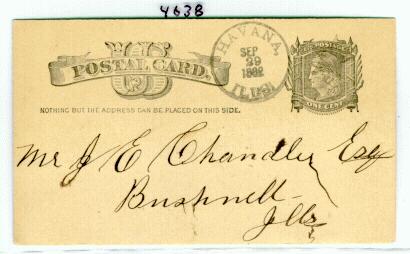 4638
U S
POSTAL CARD.
HAVANA,
SEP
29
1882
ILLS.
POSTAGE
ONE CENT
NOTHING BUT THE ADDRESS CAN BE PLACED ON THIS SIDE.
Mr J E Chandler Esq
Bushnell
Ills